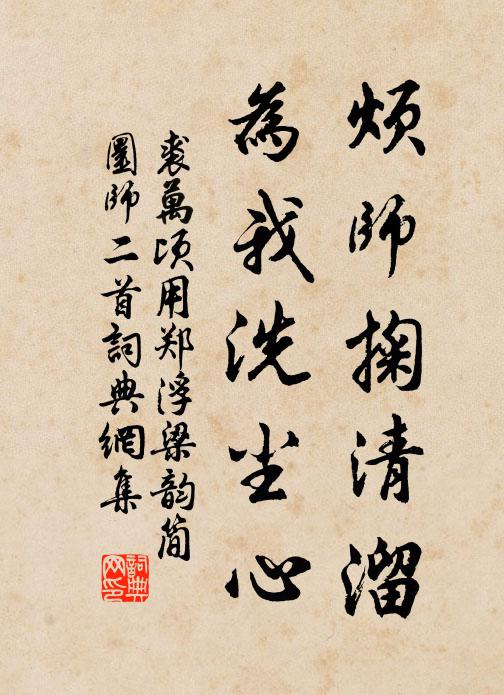 煩師掬清溜
為我洗尘心
裘萬頃用郑浮梁韵简
圓師二首詞典網集
詞典
网印